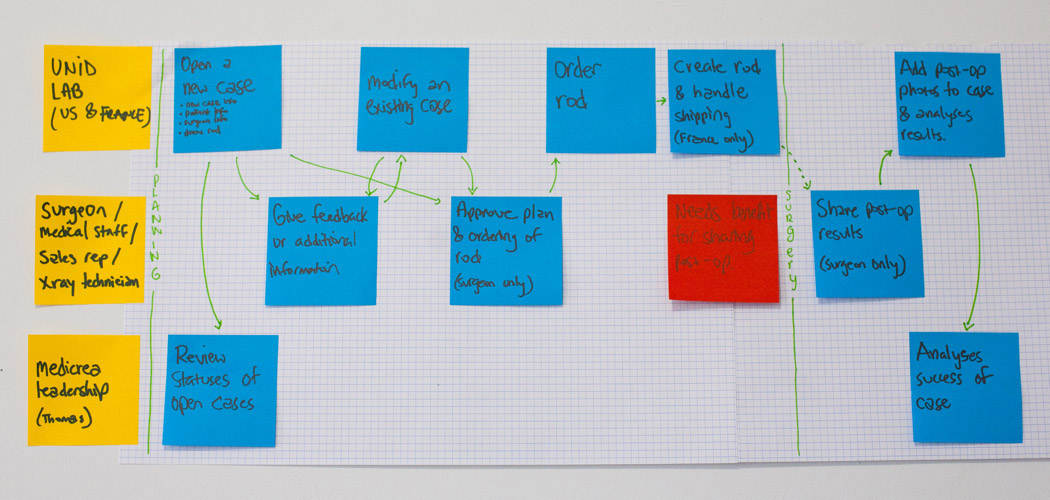 UNiD
LAB
(US & FRANCE)
Open a
new case
• new case info
• patient info
• surgeon info
Modify an
existing case
Order
rod
Create rod
& handle
shipping
(France only)
Add post-op
photos to case
& analyses
results.
PLANNING
Surgeon/
medical staff/
Sales rep/
Xray technician
Give feedback
or additional
information
Approve plan
& ordering of
rod
(surgeon only)
Needs benefit
for sharing
post-op
surgery
Share post-op
results
(surgeon only)
Medicrea
leadership
(Thomas)
Review
statuses of
open cases
Analyses
success of
case